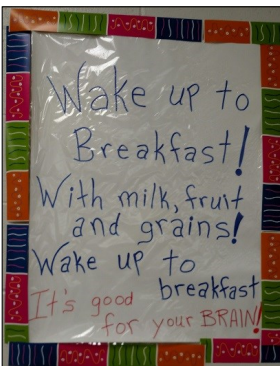 Wake up to
Breakfast!
With milk, fruit
and grains!
Wake up to
breakfast
It's good
for your BRAIN!